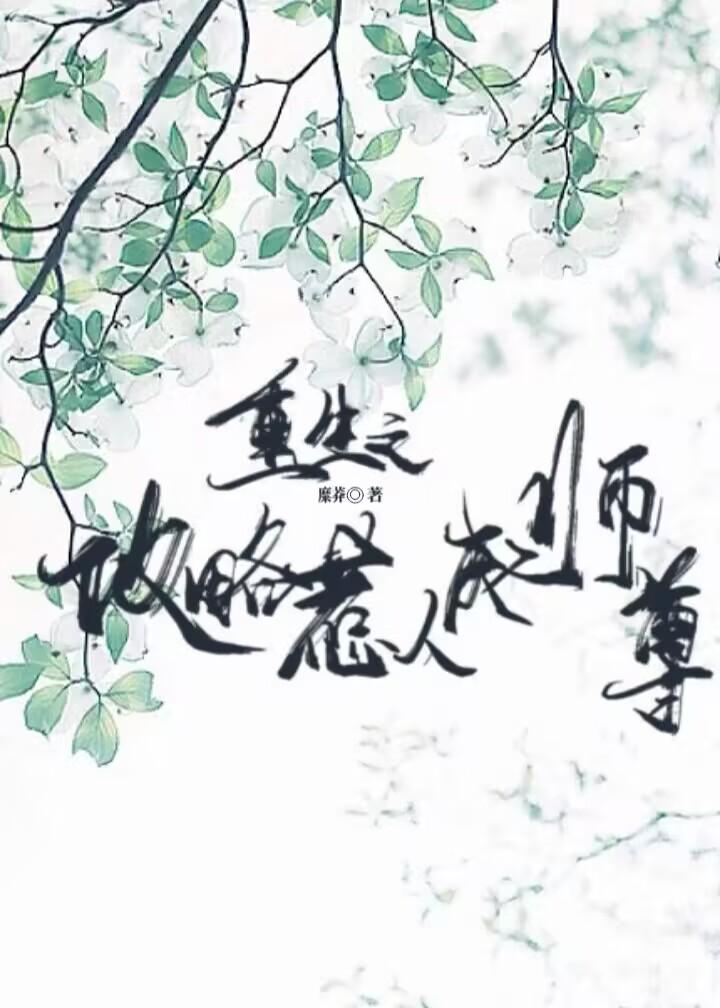 重生之
糜莽◎ 著
攻略惹人成师尊